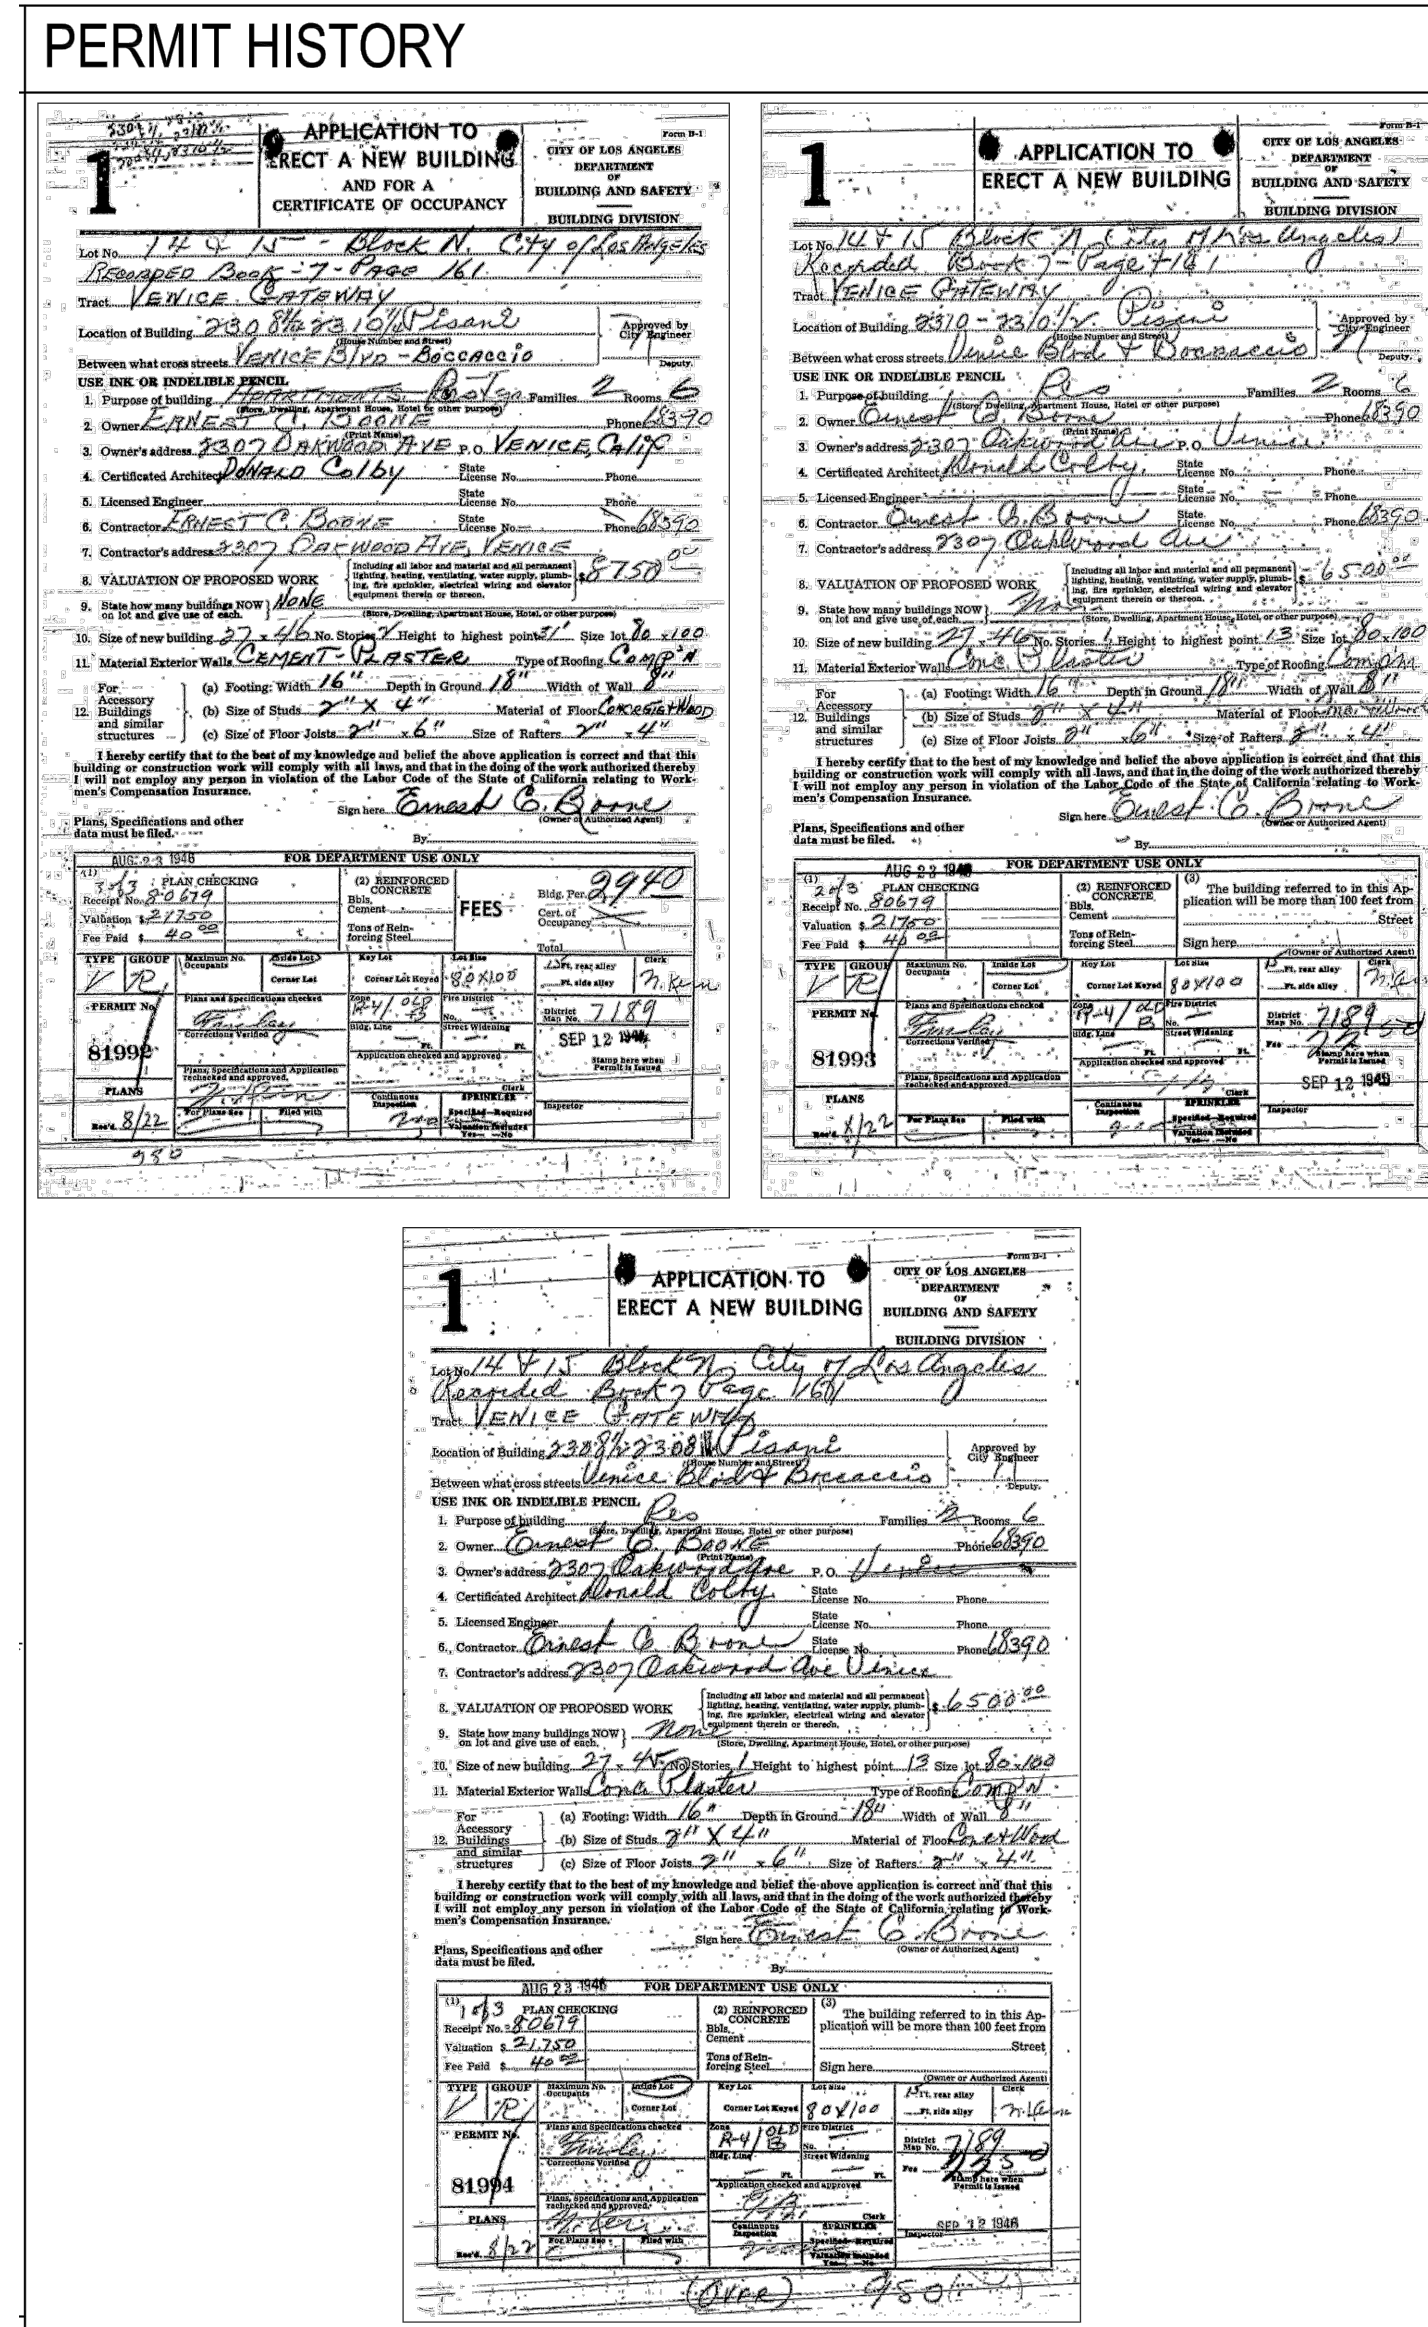 PERMIT HISTORY
1
APPLICATION TO
ERECT A NEW BUILDING
AND FOR A
CERTIFICATE OF OCCUPANCY
Form B-1
CITY OF LOS ANGELES
DEPARTMENT
OF
BUILDING AND SAFETY
BUILDING DIVISION
Lot No. 14 & 15 - Block N. City of Los Angeles
RECORDED BOOK - 7 - PAGE 161
Tract VENICE GATEWAY
Location of Building 2308½ 2310½ Pisani
(House Number and Street)
Approved by
City Engineer
Between what cross streets VENICE BLVD - BOCCACCIO
Deputy.
USE INK OR INDELIBLE PENCIL
1. Purpose of building Families 2 Rooms 6
(Store, Dwelling, Apartment House, Hotel or other purpose)
2. Owner ERNEST C. BOONE Phone 68390
(Print Name)
3. Owner's address 2307 OAKWOOD AVE P.O. VENICE, Calif
4. Certificated Architect DONALD COLBY State License No. Phone
5. Licensed Engineer State License No. Phone
6. Contractor ERNEST C. BOONE State License No. Phone 68390
7. Contractor's address 2307 OAKWOOD AVE, VENICE
8. VALUATION OF PROPOSED WORK {Including all labor and material and all permanent lighting, heating, ventilating, water supply, plumbing, fire sprinkler, electrical wiring and elevator equipment therein or thereon.} $8750 00
9. State how many buildings NOW on lot and give use of each. } NONE
(Store, Dwelling, Apartment House, Hotel, or other purpose)
10. Size of new building 27 x 46 No. Stories Height to highest point Size lot 80 x 100
11. Material Exterior Walls CEMENT-PLASTER Type of Roofing COMP'N
12. For Accessory Buildings and similar structures
(a) Footing: Width 16" Depth in Ground 18" Width of Wall 8"
(b) Size of Studs 2" X 4" Material of Floor CONCRETE & WOOD
(c) Size of Floor Joists 2" x 6" Size of Rafters 2" x 4"
I hereby certify that to the best of my knowledge and belief the above application is correct and that this
building or construction work will comply with all laws, and that in the doing of the work authorized thereby
I will not employ any person in violation of the Labor Code of the State of California relating to Work-
men's Compensation Insurance.
Sign here Ernest C. Boone
(Owner or Authorized Agent)
Plans, Specifications and other
data must be filed.
By
AUG 23 1946 FOR DEPARTMENT USE ONLY
(1) 3 of 3 PLAN CHECKING
Receipt No. 80679
Valuation $ 21750
Fee Paid $ 40 00
(2) REINFORCED CONCRETE
Bbls. Cement
Tons of Reinforcing Steel
FEES
Bldg. Per. 2940
Cert. of Occupancy
Total
TYPE V GROUP R Maximum No. Occupants Inside Lot Corner Lot Key Lot Corner Lot Keyed Lot Size 80X100 15 Ft. rear alley Ft. side alley Clerk
PERMIT No. 81992
Plans and Specifications checked Finley
Corrections Verified
Zone R-4/ OLD B Fire District No.
Bldg. Line Ft. Street Widening Ft.
District Map No. 7189
SEP 12 1946
Stamp here when Permit is Issued
Plans, Specifications and Application rechecked and approved.
Application checked and approved
Clerk
PLANS Rec'd. 8/22 For Plans See Filed with Continuous Inspection SPRINKLER Specified-Required Valuation Included Yes-No Inspector
950
1
APPLICATION TO
ERECT A NEW BUILDING
Form B-1
CITY OF LOS ANGELES
DEPARTMENT
OF
BUILDING AND SAFETY
BUILDING DIVISION
Lot No. 14 & 15 Block N City of Los Angeles
Recorded Book 7 - Page 161
Tract VENICE GATEWAY
Location of Building 2310 - 2310½ Pisani
Approved by
City Engineer
Between what cross streets Venice Blvd & Boccaccio
Deputy.
USE INK OR INDELIBLE PENCIL
1. Purpose of building Res Families 2 Rooms 6
(Store, Dwelling, Apartment House, Hotel or other purpose)
2. Owner Ernest C. Boone Phone 68390
(Print Name)
3. Owner's address 2307 Oakwood Ave P.O. Venice
4. Certificated Architect Donald Colby State License No. Phone
5. Licensed Engineer State License No. Phone
6. Contractor Ernest C. Boone State License No. Phone 68390
7. Contractor's address 2307 Oakwood Ave
8. VALUATION OF PROPOSED WORK {Including all labor and material and all permanent lighting, heating, ventilating, water supply, plumbing, fire sprinkler, electrical wiring and elevator equipment therein or thereon.} $ 6500 00
9. State how many buildings NOW on lot and give use of each. } None
(Store, Dwelling, Apartment House, Hotel, or other purpose)
10. Size of new building 27 x 46 No. Stories 1 Height to highest point 13 Size lot 80 x 100
11. Material Exterior Walls Conc Plaster Type of Roofing Comp'n
12. For Accessory Buildings and similar structures
(a) Footing: Width 16" Depth in Ground 18" Width of Wall 8"
(b) Size of Studs 2" X 4" Material of Floor
(c) Size of Floor Joists 2" x 6" Size of Rafters 2" x 4"
I hereby certify that to the best of my knowledge and belief the above application is correct and that this
building or construction work will comply with all laws, and that in the doing of the work authorized thereby
I will not employ any person in violation of the Labor Code of the State of California relating to Work-
men's Compensation Insurance.
Sign here Ernest C. Boone
(Owner or Authorized Agent)
Plans, Specifications and other
data must be filed.
By
AUG 23 1946 FOR DEPARTMENT USE ONLY
(1) 2 of 3 PLAN CHECKING
Receipt No. 80679
Valuation $ 21750
Fee Paid $ 40 00
(2) REINFORCED CONCRETE
Bbls. Cement
Tons of Reinforcing Steel
(3) The building referred to in this Ap-
plication will be more than 100 feet from
Street
Sign here
(Owner or Authorized Agent)
TYPE V GROUP R Maximum No. Occupants Inside Lot Corner Lot Key Lot Corner Lot Keyed Lot Size 80X100 15 Ft. rear alley Ft. side alley Clerk
PERMIT No. 81993
Plans and Specifications checked Finley
Corrections Verified
Zone R-4/ OLD B Fire District No.
Bldg. Line Ft. Street Widening Ft.
District Map No. 7189
Fee
Stamp here when Permit is Issued
SEP 12 1946
Plans, Specifications and Application rechecked and approved.
Application checked and approved
Clerk
PLANS Rec'd. 8/22 For Plans See Filed with Continuous Inspection SPRINKLER Specified-Required Valuation Included Yes-No Inspector
1
APPLICATION TO
ERECT A NEW BUILDING
Form B-1
CITY OF LOS ANGELES
DEPARTMENT
OF
BUILDING AND SAFETY
BUILDING DIVISION
Lot No. 14 & 15 Block N City of Los Angeles
Recorded Book 7 Page 161
Tract VENICE GATEWAY
Location of Building 2308½ 2308 Pisani
(House Number and Street)
Approved by
City Engineer
Between what cross streets Venice Blvd & Boccaccio
Deputy.
USE INK OR INDELIBLE PENCIL
1. Purpose of building Res Families 2 Rooms 6
(Store, Dwelling, Apartment House, Hotel or other purpose)
2. Owner Ernest C. BOONE Phone 68390
(Print Name)
3. Owner's address 2307 Oakwood Ave P.O. Venice
4. Certificated Architect Donald Colby State License No. Phone
5. Licensed Engineer State License No. Phone
6. Contractor Ernest C. Boone State License No. Phone 68390
7. Contractor's address 2307 Oakwood Ave Venice
8. VALUATION OF PROPOSED WORK {Including all labor and material and all permanent lighting, heating, ventilating, water supply, plumbing, fire sprinkler, electrical wiring and elevator equipment therein or thereon.} $ 6500 00
9. State how many buildings NOW on lot and give use of each. } None
(Store, Dwelling, Apartment House, Hotel, or other purpose)
10. Size of new building 27 x 45 No. Stories 1 Height to highest point 13 Size lot 80 x 100
11. Material Exterior Walls Conc Plaster Type of Roofing COMP'N
12. For Accessory Buildings and similar structures
(a) Footing: Width 16" Depth in Ground 18" Width of Wall 8"
(b) Size of Studs 2" X 4" Material of Floor Conc & Wood
(c) Size of Floor Joists 2" x 6" Size of Rafters 2" x 4"
I hereby certify that to the best of my knowledge and belief the above application is correct and that this
building or construction work will comply with all laws, and that in the doing of the work authorized thereby
I will not employ any person in violation of the Labor Code of the State of California relating to Work-
men's Compensation Insurance.
Sign here Ernest C. Boone
(Owner or Authorized Agent)
Plans, Specifications and other
data must be filed.
By
AUG 23 1946 FOR DEPARTMENT USE ONLY
(1) 1 of 3 PLAN CHECKING
Receipt No. 80679
Valuation $ 21,750
Fee Paid $ 40 00
(2) REINFORCED CONCRETE
Bbls. Cement
Tons of Reinforcing Steel
(3) The building referred to in this Ap-
plication will be more than 100 feet from
Street
Sign here
(Owner or Authorized Agent)
TYPE V GROUP R Maximum No. Occupants Inside Lot Corner Lot Key Lot Corner Lot Keyed Lot Size 80X100 15 Ft. rear alley Ft. side alley Clerk
PERMIT No. 81994
Plans and Specifications checked Finley
Corrections Verified
Zone R-4/ OLD B Fire District No.
Bldg. Line Ft. Street Widening Ft.
District Map No. 7189
Fee
Stamp here when Permit is Issued
Plans, Specifications and Application rechecked and approved.
Application checked and approved
Clerk
SEP 12 1946
PLANS Rec'd. 8/22 For Plans See Filed with Continuous Inspection SPRINKLER Specified-Required Valuation Included Yes-No Inspector
(OVER) 950